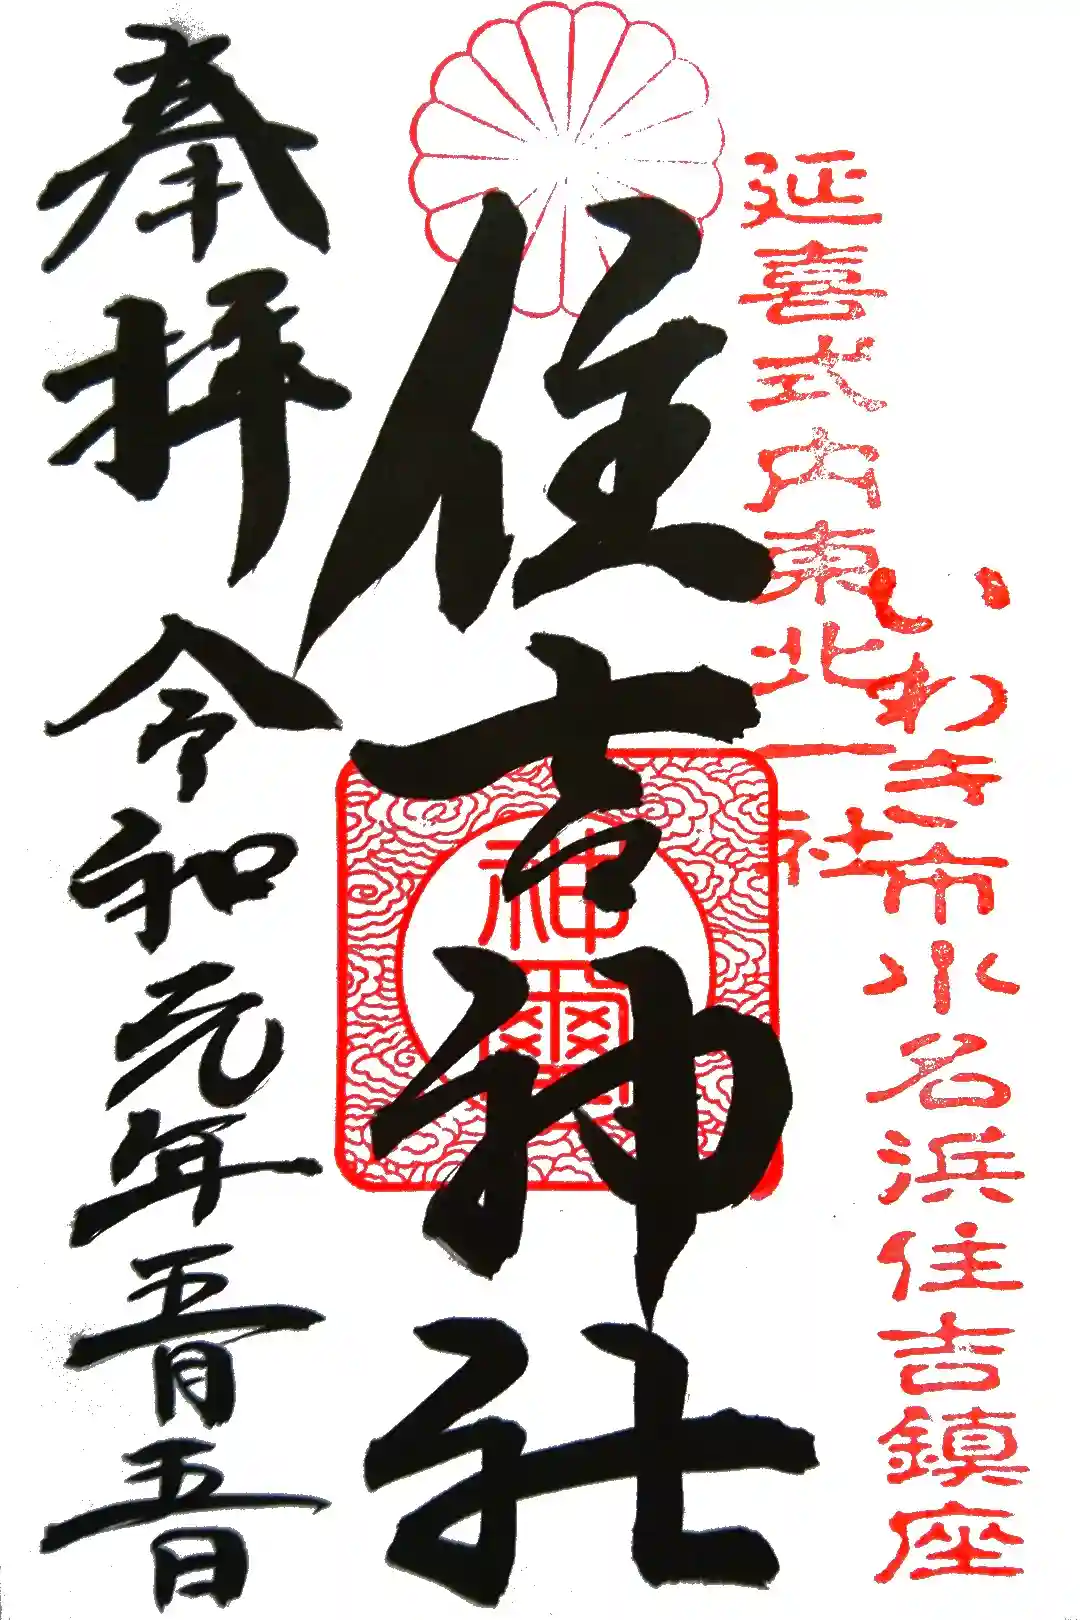 いわき市小名浜住吉鎮座
延喜式内東北一社
住吉神社
神璽
奉拝
令和元年五月五日